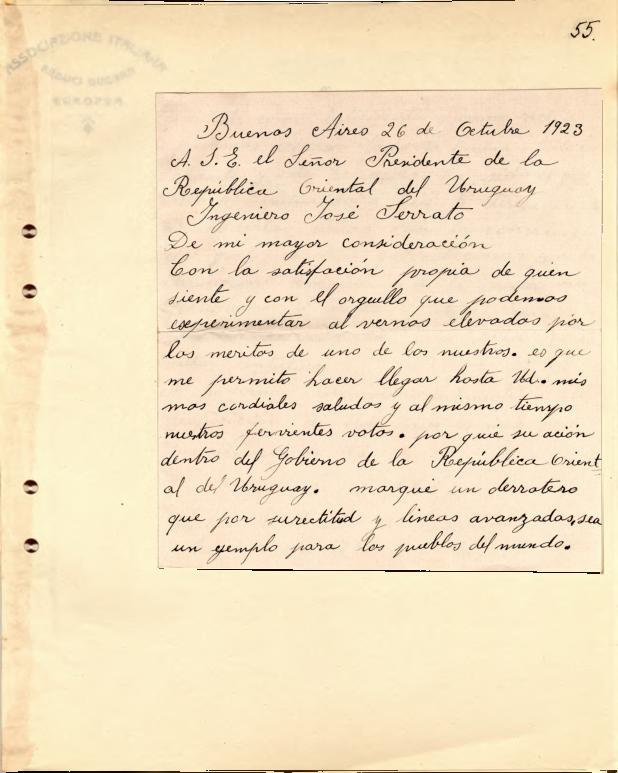 55.
ASSOCIAZIONE ITALIANA
REDUCI GUERRA
EUROPEA
Buenos Aires 26 de Octubre 1923
A. S. E. el Señor Presidente de la
República Oriental del Uruguay
Ingeniero José Serrato
De mi mayor consideración
Con la satisfacción propia de quien
siente y con el orgullo que podemos
esperimentar al vernos elevados por
los meritos de uno de los nuestros. es que
me permito hacer llegar hasta Ud. mis
mas cordiales saludos y al mismo tiempo
nuestros fervientes votos. por que su ación
dentro del Gobierno de la República Orient
al del Uruguay. marque un derrotero
que por su rectitud y lineas avanzadas, sea
un ejemplo para los pueblos del mundo.